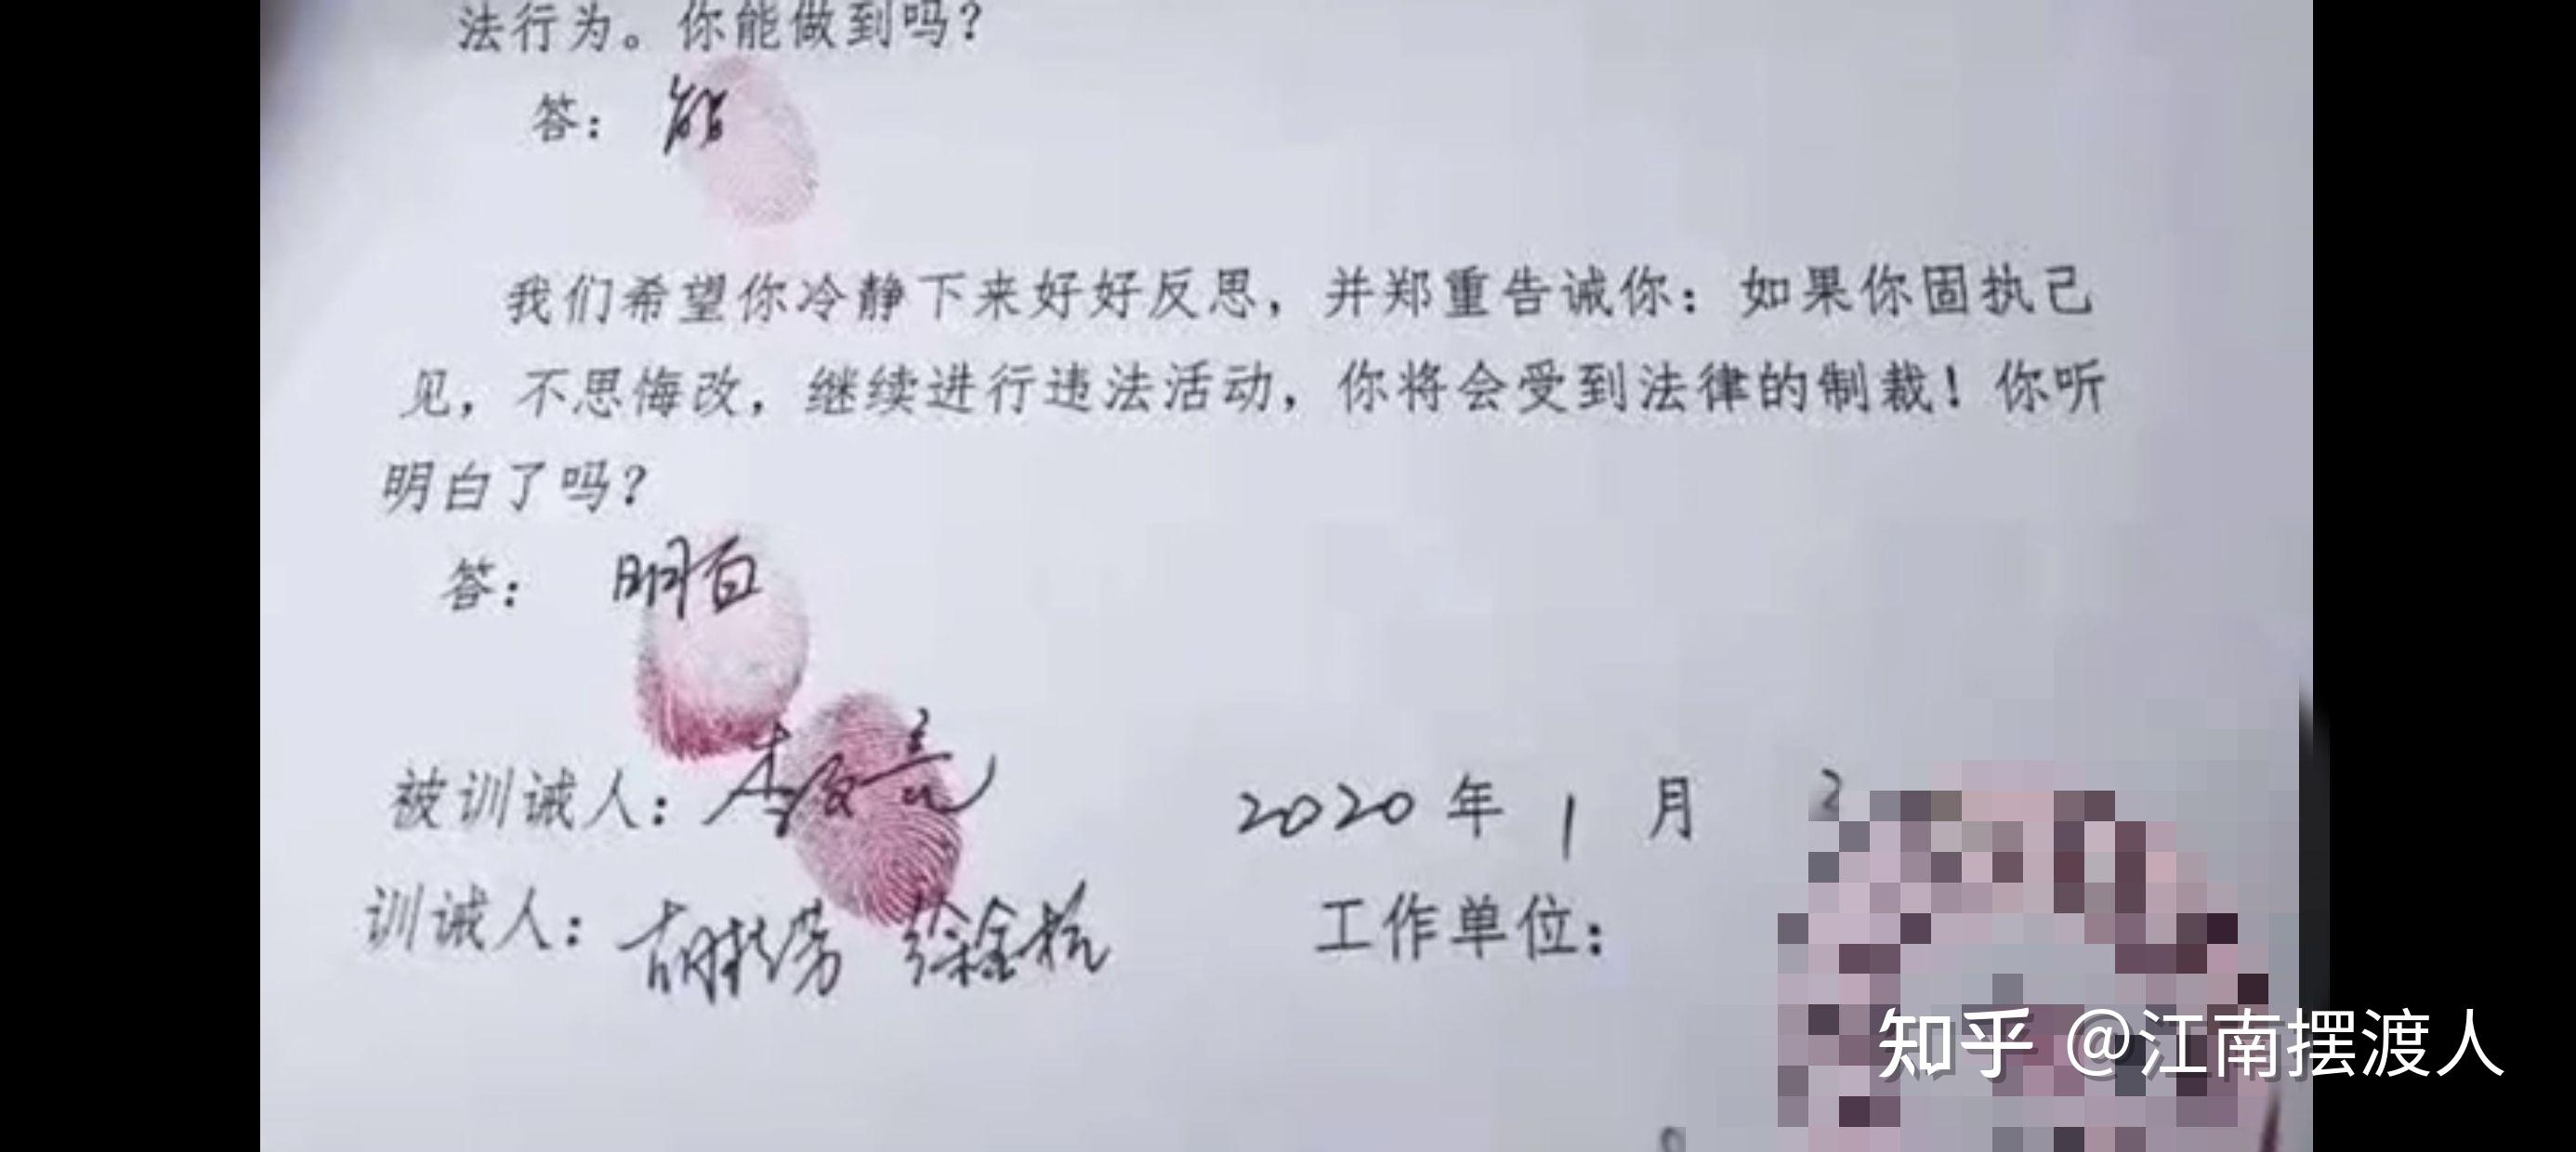 法行为。你能做到吗？
答： 能
我们希望你冷静下来好好反思，并郑重告诫你：如果你固执己
见，不思悔改，继续进行违法活动，你将会受到法律的制裁！你听
明白了吗？
答： 明白
被训诫人： 李文亮 2020 年 1 月
训诫人： 胡桂芳 徐金杭 工作单位：
知乎 @江南摆渡人